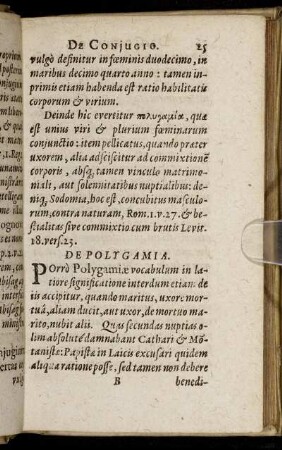 DE CONJUGIO. 25
vulgò definitur in fœminis duodecimo, in
maribus decimo quarto anno: tamen in-
primis etiam habenda est ratio habilitatis
corporum & virium.
Deinde hic evertitur πολυγαμία, quæ
est unius viri & plurium fœminarum
conjunctio: item pellicatus, quando præter
uxorem, alia adsciscitur ad commixtionẽ
corporis, absq́; tamen vinculo matrimo-
niali, aut solemnitatibus nuptialibus: de-
niq́; Sodomia, hoc est, concubitus masculo-
rum, contra naturam, Rom. 1. v. 27. & be-
stialitas sive commixtio cum brutis Levit.
18. vers. 23.
DE POLYGAMIA.
POrrò Polygamiæ vocabulum in la-
tiore significatione interdum etiam de
iis accipitur, quando maritus, uxore mor-
tuâ, aliam ducit, aut uxor, de mortuo ma-
rito, nubit alii. Quas secundas nuptias o-
lim absolutè damnabant Cathari & Mõ-
tanistæ: Papistæ in Laicis excusari quidem
aliqua ratione posse, sed tamen non debere
B benedi-